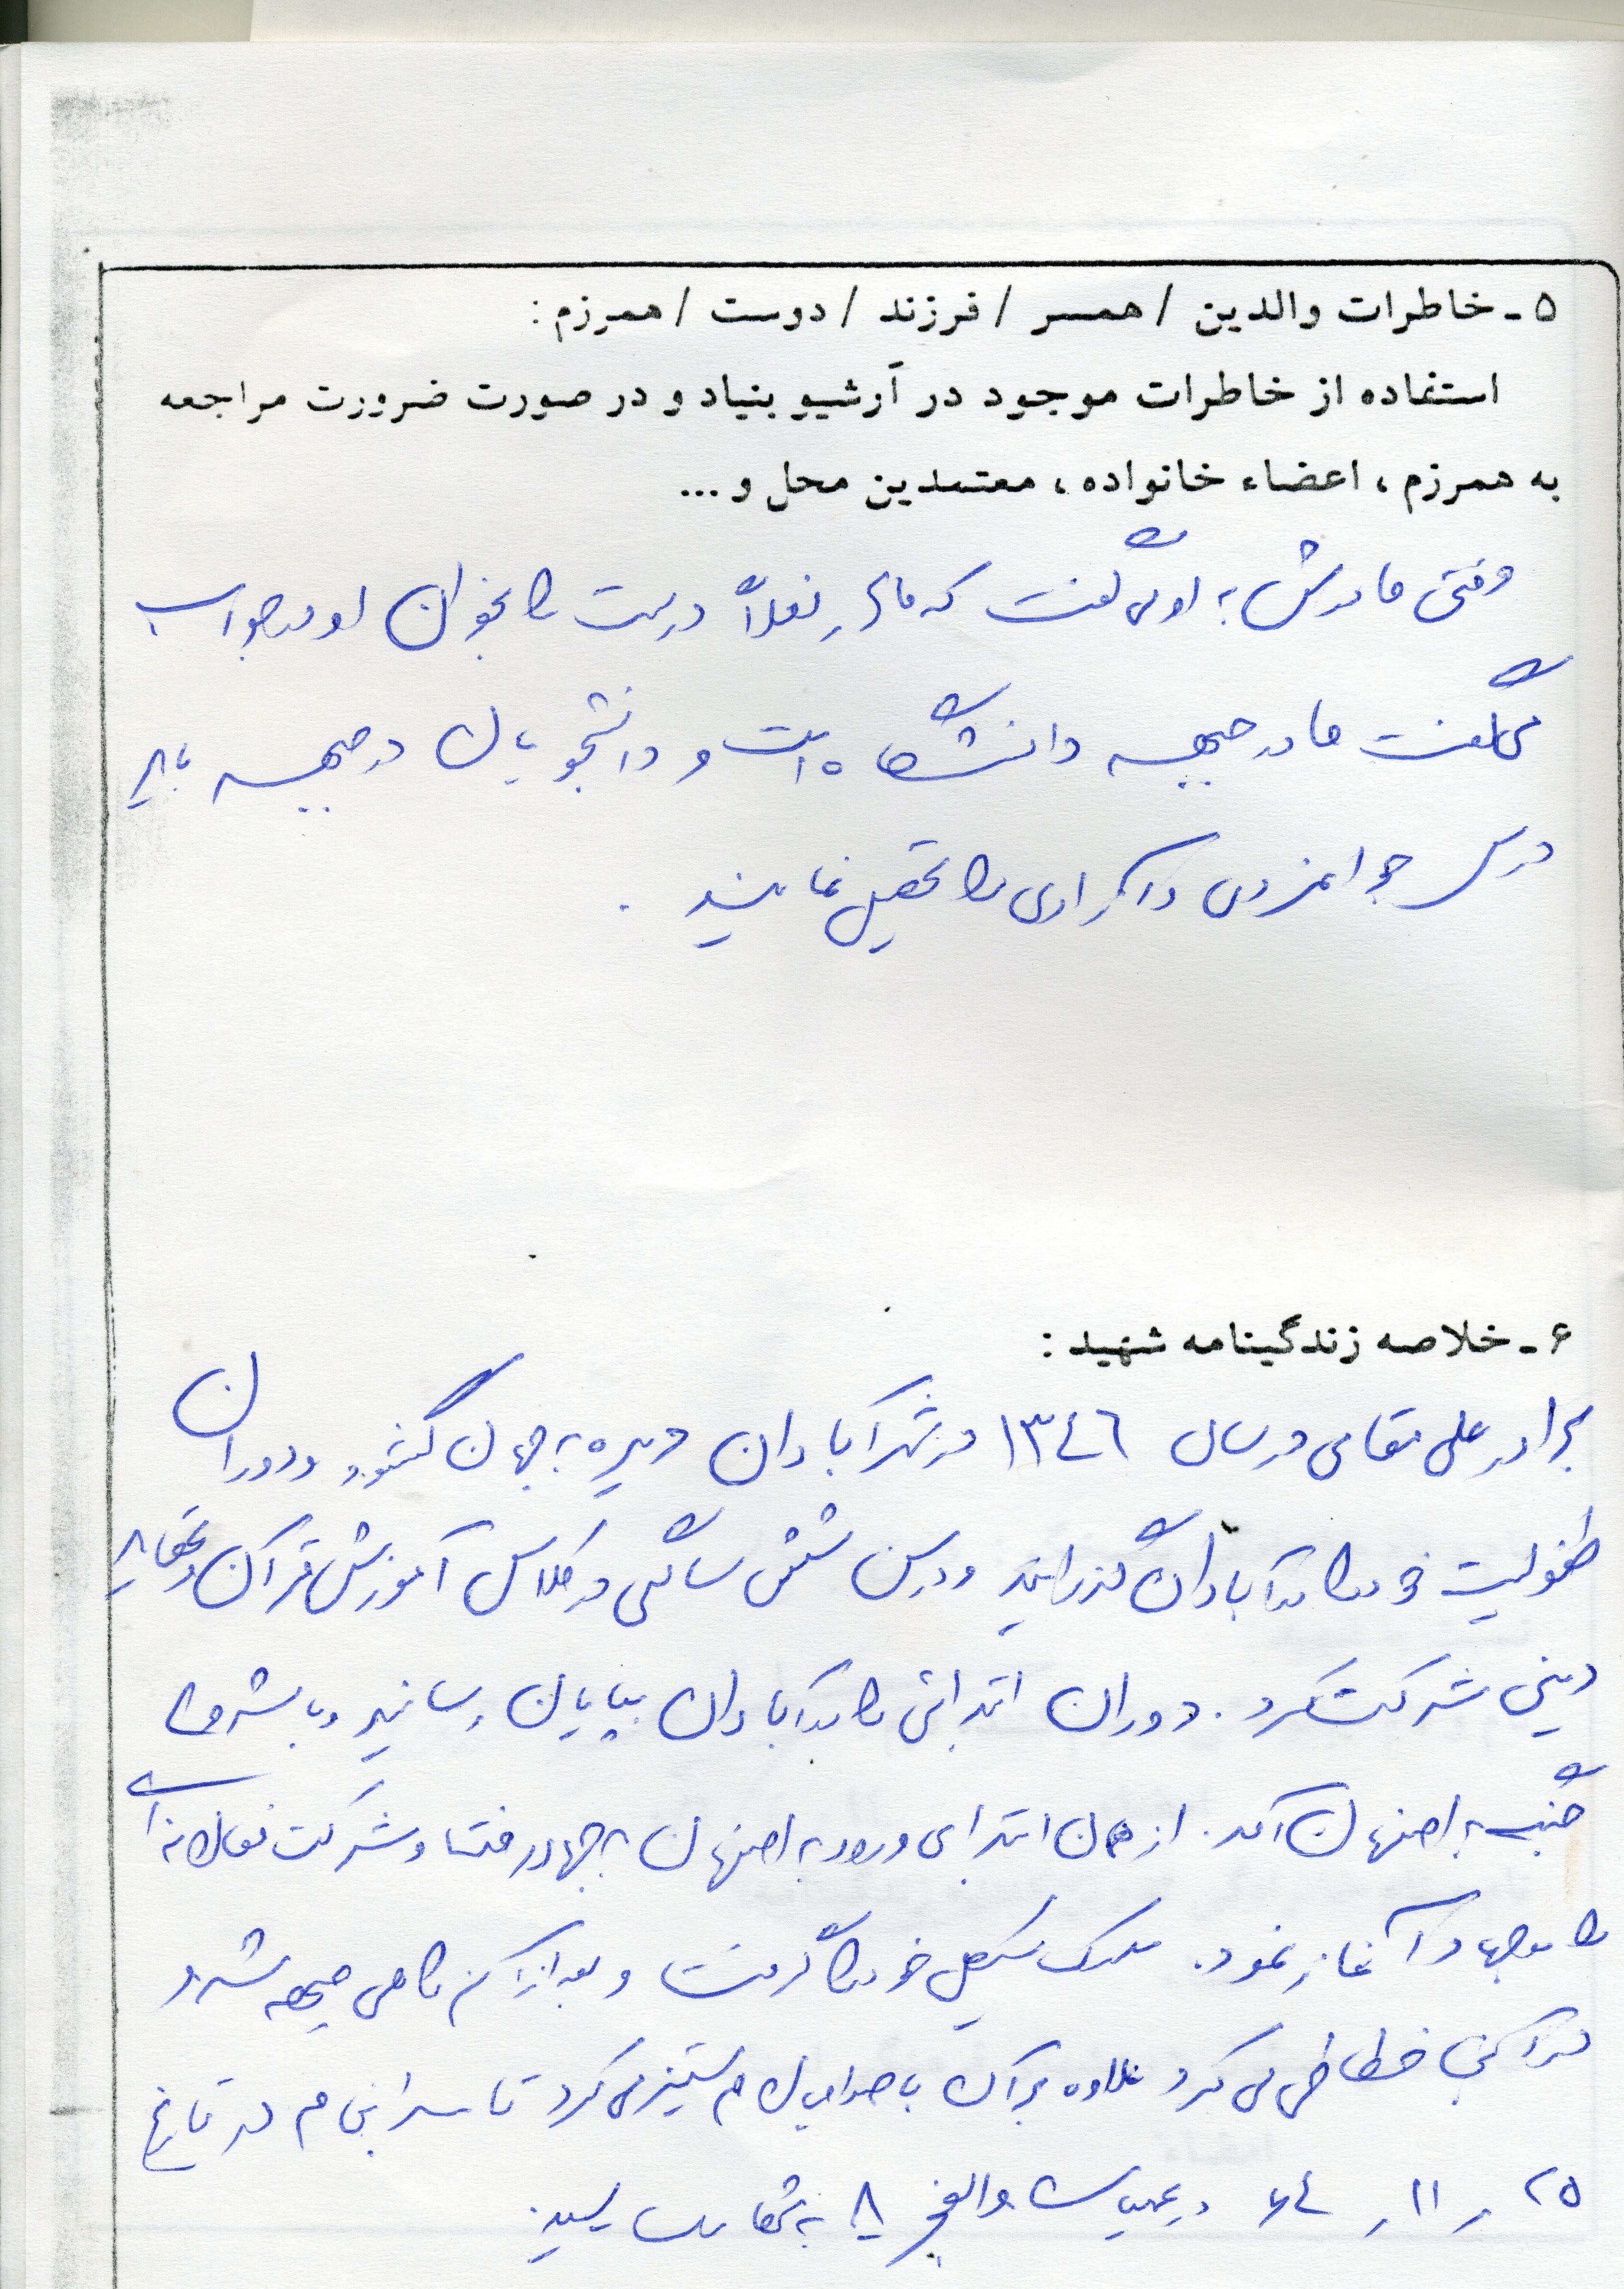 ۵ - خاطرات والدین / همسر / فرزند / دوست / همرزم :
استفاده از خاطرات موجود در آرشیو بنیاد و در صورت ضرورت مراجعه
به همرزم ، اعضاء خانواده ، معتمدین محل و ...
وقتی مادرش به او می گفت که مادر فعلاً درست را بخوان او در جواب
می گفت مادر جبهه دانشگاه است و دانشجویان در جبهه باید
درس جوانمردی و آزادی را تحصیل نمایند .
۶ - خلاصه زندگینامه شهید :
برادر علی مقامی در سال ۱۳۴۶ در شهر آبادان دیده به جهان گشود و دوران
طفولیت خود را در آبادان گذرانید و در سن شش سالگی در کلاس آموزش قرآن و عقاید
دینی شرکت کرد . دوران ابتدائی را در آبادان بپایان رسانید و با شروع
جنگ به اصفهان آمد . از همان ابتدای ورود به اصفهان به جهاد رفت و شرکت فعالانه ای
را در جهاد آغاز نمود . مدرک سیکل خود را گرفت و بعد از آن راهی جبهه شد و
در آنجا خطاطی می کرد علاوه بر آن با صدامیان هم ستیز می کرد تا سرانجام در تاریخ
۲۵ ر ۱۱ ر ۶۴ در عملیات والفجر ۸ به شهادت رسید .